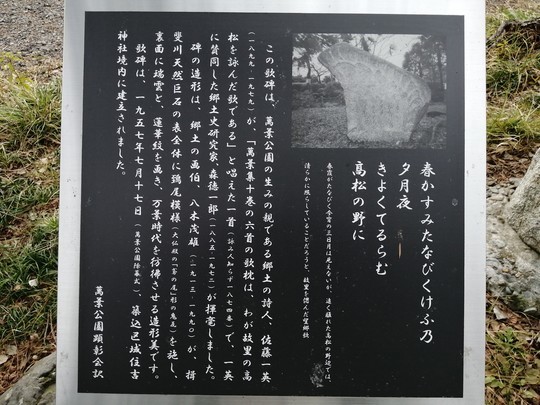 春かすみたなびくけふ乃
夕月夜
きよくてるらむ
高松の野に
春霞がたなびく今宵の三日月は見えないが、遠く離れた高松の野辺では、
清らかに照らしていることだろうと、故里を偲んだ望郷歌
この歌碑は、萬葉公園の生みの親である郷土の詩人、佐藤一英
(一八九九‐一九七九)が、「萬葉集十巻の六首の歌枕は、わが故里の高
松を詠んだ歌である」と唱えた一首(詠み人知らず一八七四番)で、一英
に賛同した郷土史研究家、森徳一郎(一八八五‐一九七二)が揮毫しました。
碑の造形は、郷土の画伯、八木茂雄(一九一三‐一九九〇)が、揖
斐川天然巨石の表全体に鴟尾模様(大仏殿の「富の尾」形の鬼瓦)を施し、
裏面に瑞雲と、蓮華紋を画き、万葉時代を彷彿させる造形美です。
歌碑は、一九五七年七月十七日(萬葉公園除幕式)、築込区域住吉
神社境内に建立されました。
萬葉公園顕彰会訳